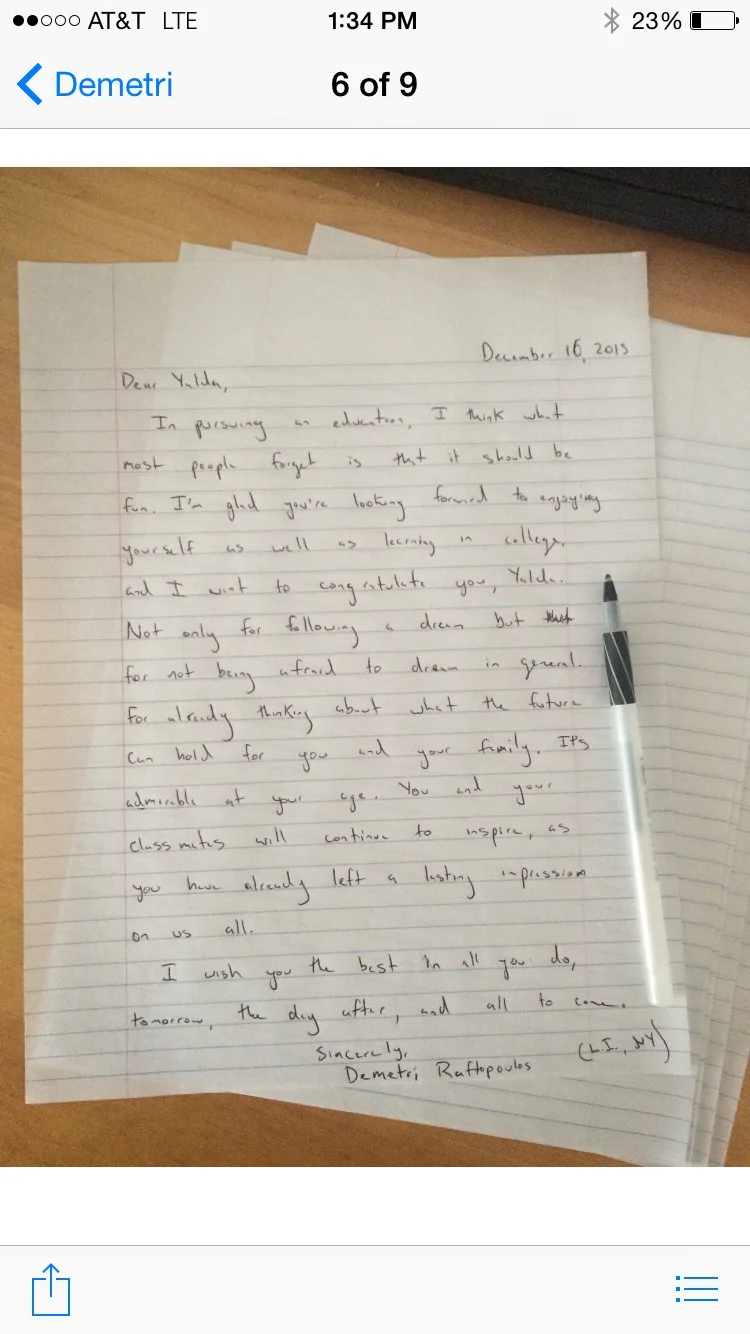 AT&T LTE 1:34 PM 23%
Demetri 6 of 9
December 16, 2015
Dear Yalda,
In pursuing an education, I think what
most people forget is that it should be
fun. I'm glad you're looking forward to enjoying
yourself as well as learning in college,
and I want to congratulate you, Yalda.
Not only for following a dream but
for not being afraid to dream in general.
For already thinking about what the future
can hold for you and your family. It's
admirable at your age. You and your
classmates will continue to inspire, as
you have already left a lasting impression
on us all.
I wish you the best in all you do,
tomorrow, the day after, and all to come.
Sincerely,
(L.I., NY)
Demetri Raftopoulos